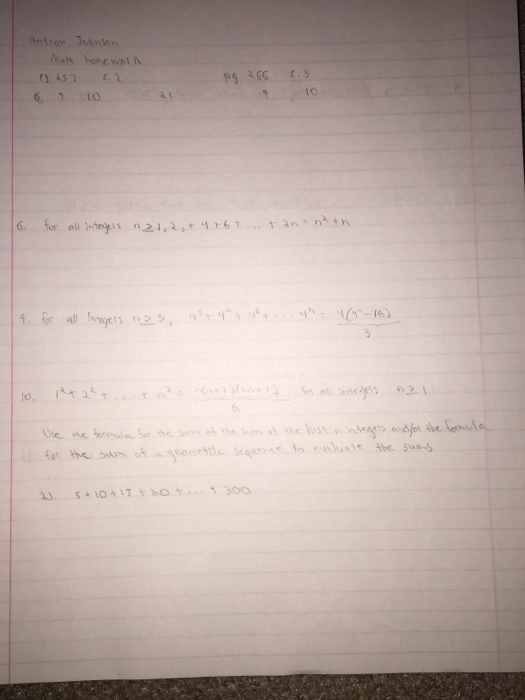 Antron Johnson
Math homework
Pg 257 5.2 pg 266 5.3
6 9 10 21 9 10
6. for all integers n ≥ 1, 2, + 4 + 6 + ... + 2n = n² + n
9. for all integers n ≥ 3, 4³ + 4⁴ + 4⁵ + ... 4ⁿ = 4(4ⁿ - 16) / 3
10. 1² + 2² + ... + n² = n(n+1)(2n+1) / 6 for all integers n ≥ 1
Use the formula for the sum of the sum of the first n integers and/or the formula
for the sum of a geometric sequence to evaluate the sums
21. 5 + 10 + 15 + 20 + ... + 300